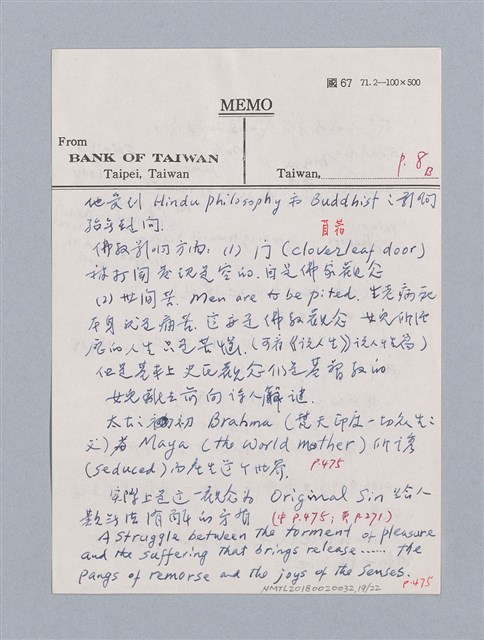 國 67 71.2—100×500
MEMO
From
BANK OF TAIWAN
Taipei, Taiwan
Taiwan,
p. 8B
他受到 Hindu philosophy 和 Buddhist 之影响
殆無疑问.
首蓿
佛教影响方面: (1) 门 (cloverleaf door)
被打開發現是空的, 自是佛家觀念
(2) 世間苦. Men are to be pited. 生老病死
本身就是痛苦. 這更是佛教觀念
的人生只是苦惱. (可看《說人生》
但是基本上 觀念仍是基督教的
女兒 前向诗人解谜.
太古之初 Brahma (梵天印度一切众生之
父) 為 Maya (the World mother) 所诱
(seduced) 而產生这个世界. p.475
實際上是這一觀念為 Original Sin 给人
(中 p.475; 英 p.271)
A struggle between the torment of pleasure
and the suffering that brings release...... the
pangs of remorse and the joys of the senses.
p.475
NMTL20180020032_19/22